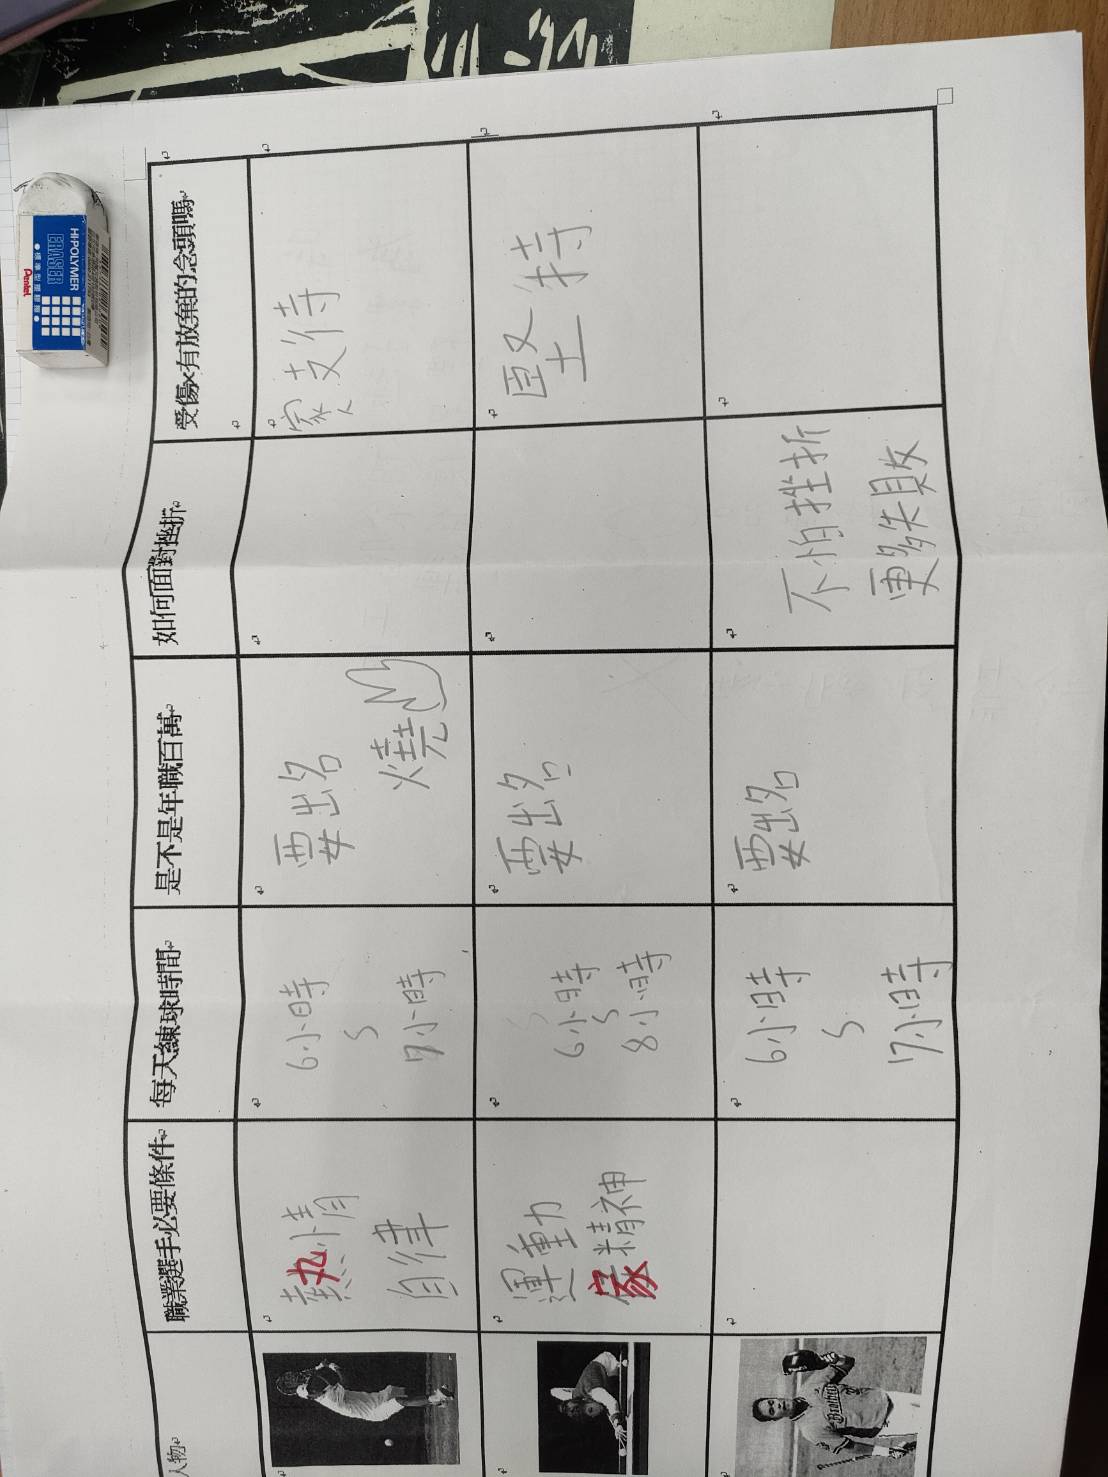 人物
職業選手必要條件
每天練球時間
是不是年職百萬
如何面對挫折
受傷x有放棄的念頭嗎
熱情
自律
6小時
5
7小時
要出名
燒
家人支持
運動
家精神
6小時
5
8小時
要出名
堅持
Brothers
6小時
5
7小時
要出名
不怕挫折
更多失敗
HI-POLYMER
ERASER
Pentel